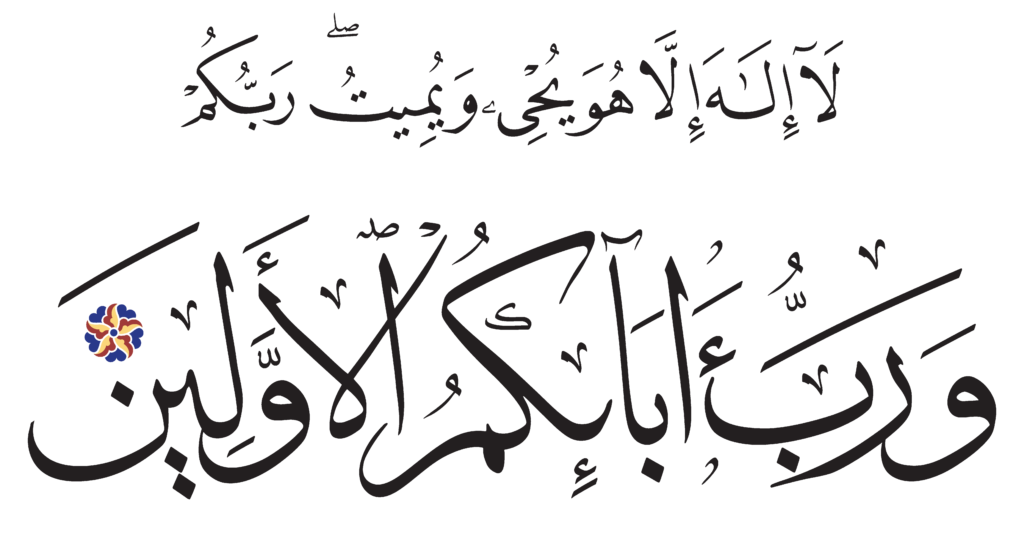 لَآ إِلَـٰهَ إِلَّا هُوَ يُحْىِۦ وَيُمِيتُ ۖ رَبُّكُمْ
وَرَبُّ ءَابَآئِكُمُ ٱلْأَوَّلِينَ